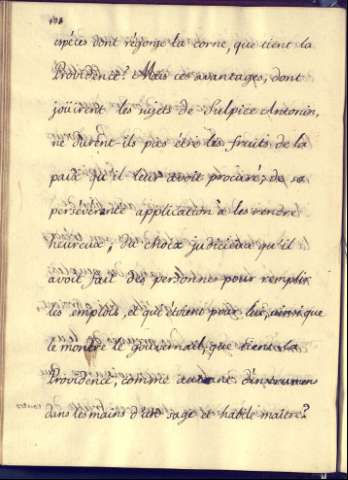 espéces dont régorge la corne, que tient la
Providence? Mais ces avantages, dont
joüirent les sujets de Sulpice Antonin,
ne durent ils pas être les fruits de la
paix qu'il leur avoit procuré; de sa
persévérante application à les rendre
heureux; du choix judicieux qu'il
avoit fait des personnes pour remplir
les emplois, et que étoient pour lui, ainsi que
le montre le gouvernail, que tient la
Providence, comme autant d'instrumens
dans les mains d'un sage et habile maître?